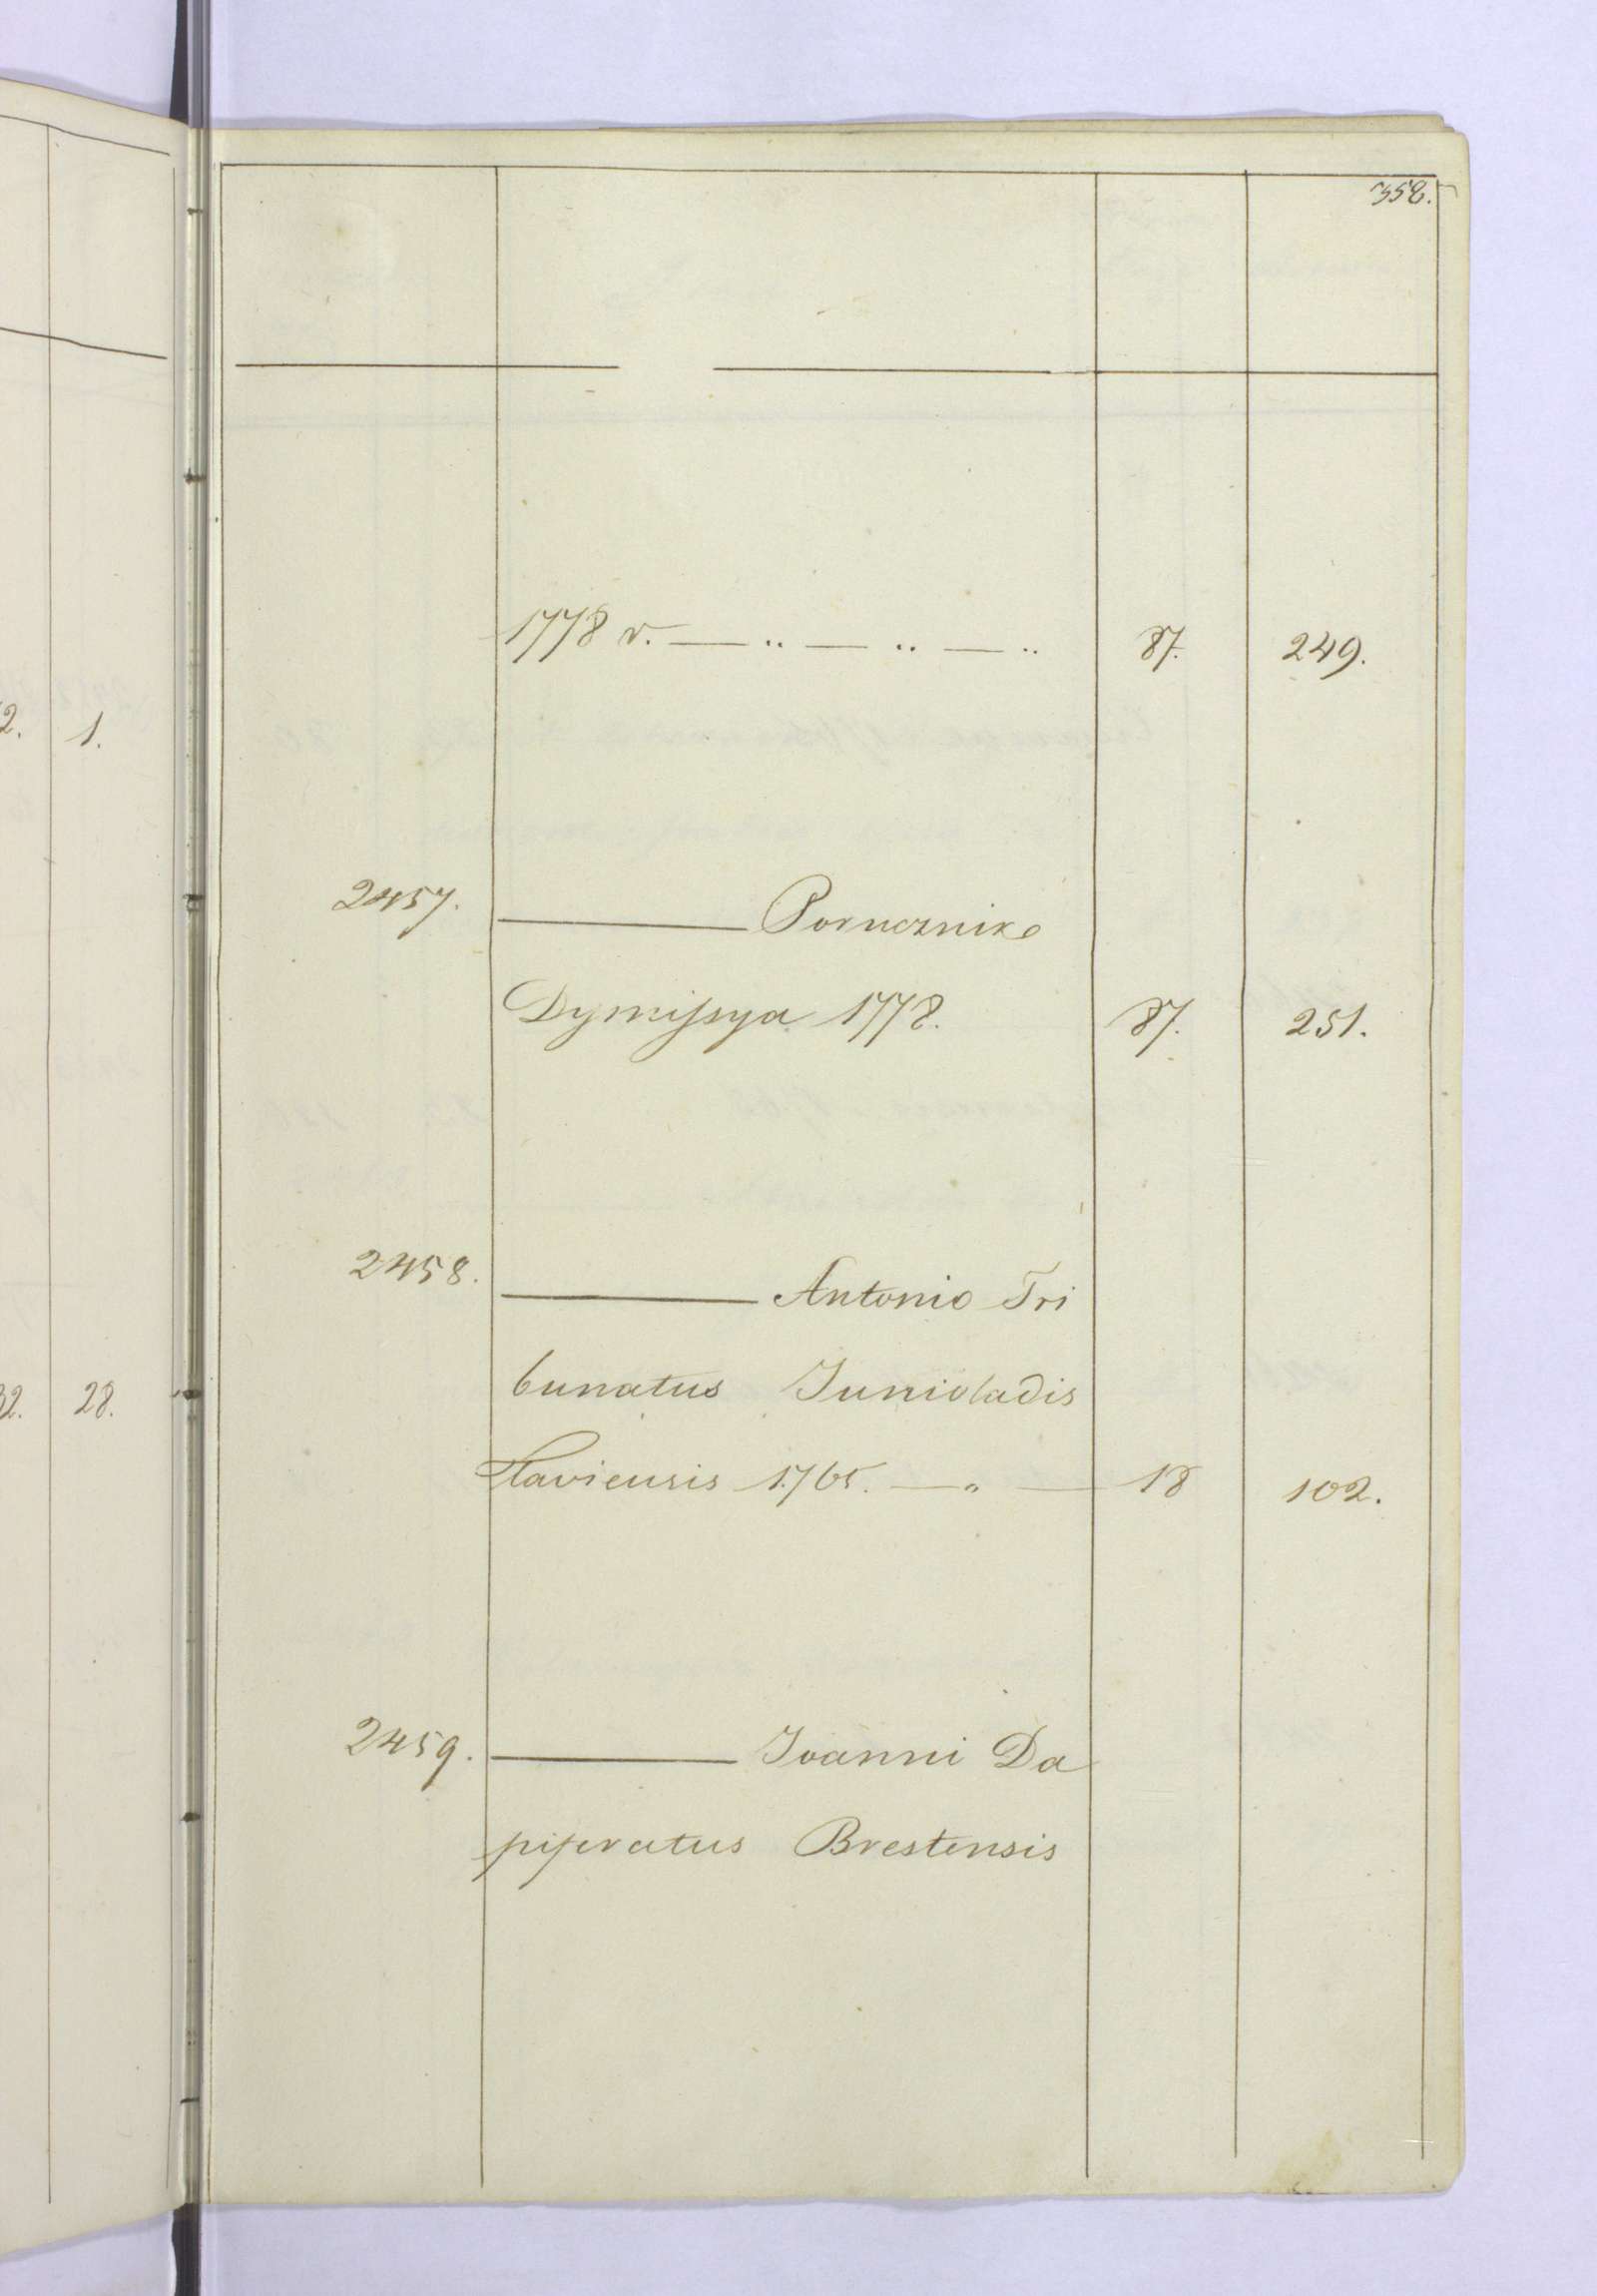 358.
1778 r. — „ — „ — „ 87. 249.
2. 1.
2457. ——— Porucznik
Dymissya 1778. 87. 251.
2458. ——— Antonio Tri
bunatus Junioladis
32. 28.
slaviensis 1765. — „ — 18 102.
2459. ——— Joanni Da
piferatus Brestensis